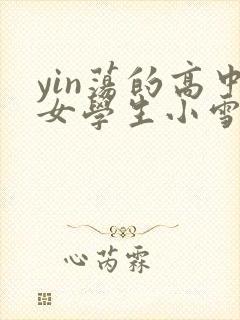 yin蕩的高中
女學生小雪
心芮霖